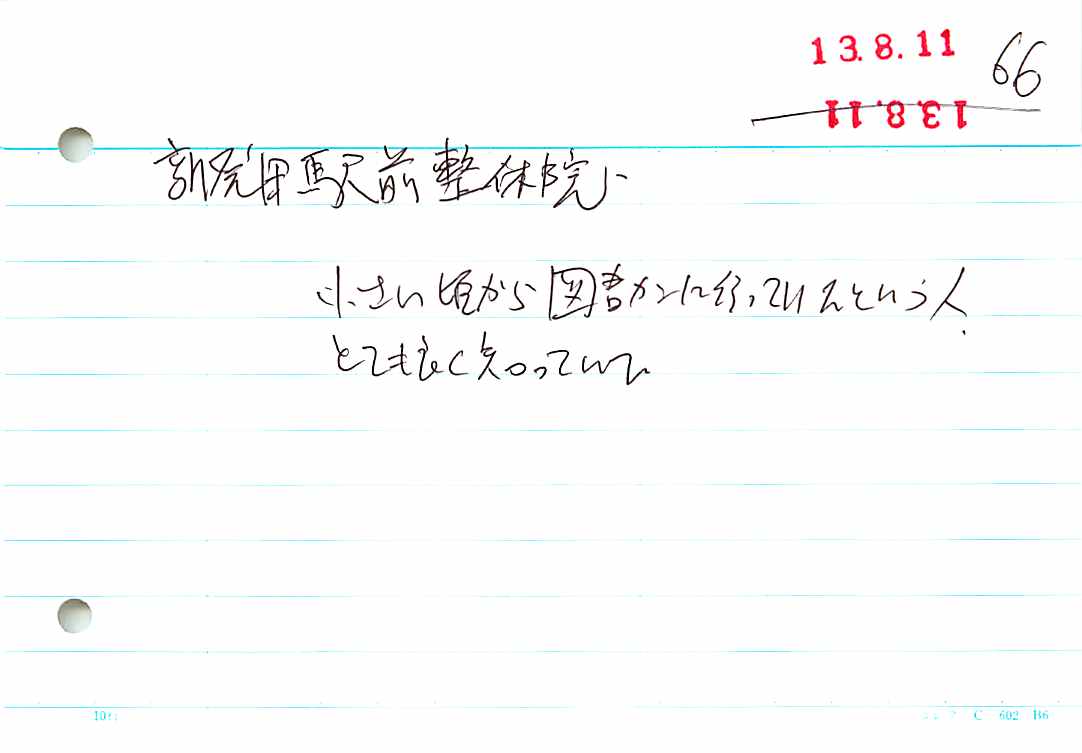 13.8.11 66
13.8.11
新発田駅前整体院
小さい頃から図書カンに行っていたという人
とても良く知っていて
C 602 B6